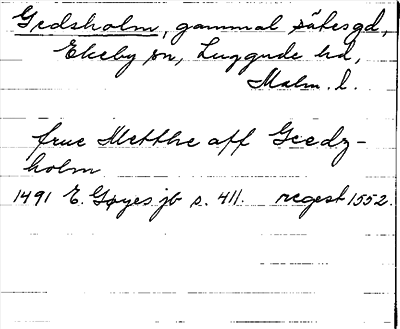 Gedsholm, gammal sätesgd,
Ekeby sn, Luggude hd,
Malm. l.
frue Metthe aff Geedz-
holm
1491 E. Gøyes jb s. 411. regest 1552.